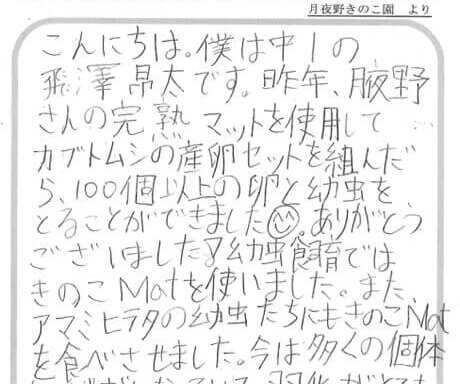 月夜野きのこ園 より
こんにちは。僕は中1の
飛澤昂太です。昨年、腋野
さんの完熟マットを使用して
カブトムシの産卵セットを組んだ
ら、100個以上の卵と幼虫を、
とることができました。ありがとう
ございました。幼虫飼育では
きのこMatを使いました。また、
アマミヒラタの幼虫たちにもきのこMat
を食べさせました。今は多くの個体